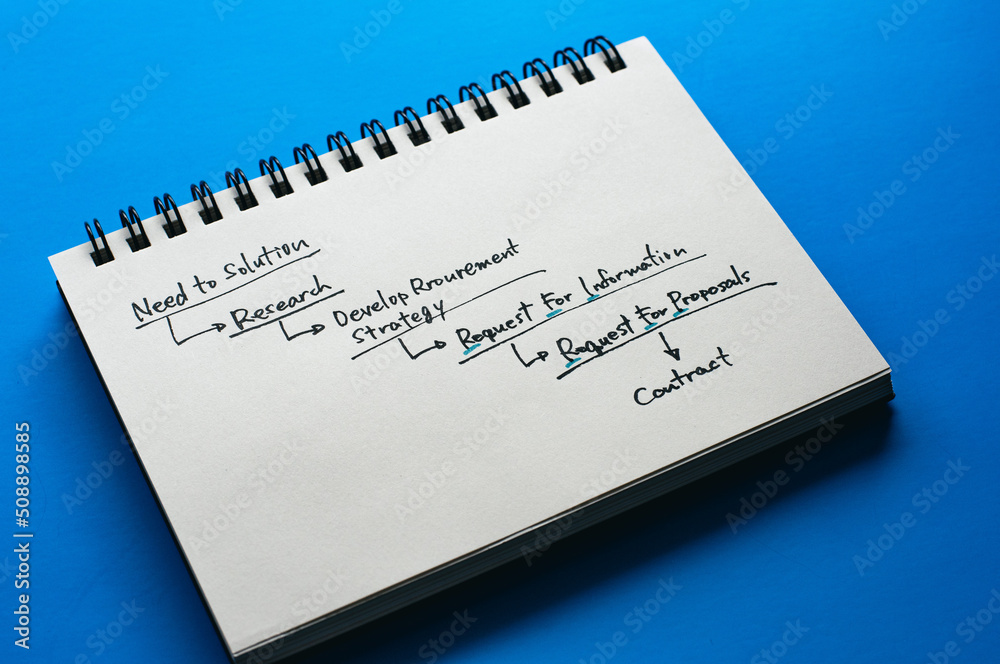 Need to Solution
Research
Develop Prourement
Strategy
Request For Information
Request For Proposals
Contract
Adobe Stock | #508898585